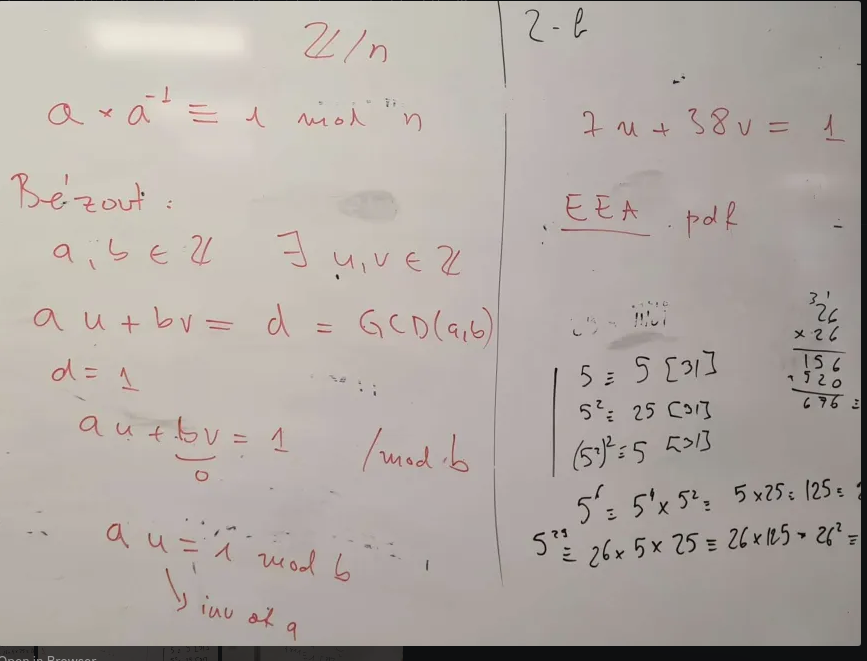 ℤ/n
a × a⁻¹ ≡ 1 mod n
Bézout :
a, b ∈ ℤ ∃ u, v ∈ ℤ
a u + b v = d = GCD(a,b)
d = 1
a u + b v = 1 /mod b
0
a u = 1 mod b
↳ inv of a
2-b
7 u + 38 v = 1
EEA .pdf
5 ≡ 5 [31]
5² ≡ 25 [31]
(5²)² ≡ 5 [31]
5⁶ ≡ 5⁴ × 5² ≡ 5 × 25 = 125 =
5²⁹ ≡ 26 × 5 × 25 ≡ 26 × 125 = 26² =
31
26
× 26
156
520
676 =
Open in Browser